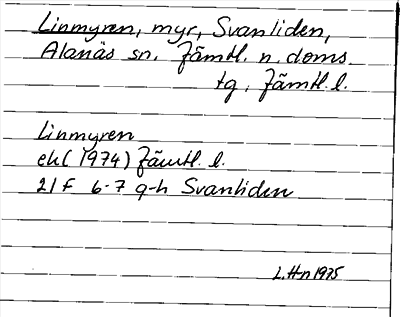 Linmyren, myr, Svanliden,
Alanäs sn. Jämtl. n. doms.
tg, Jämtl. l.
Linmyren
ek (1974) Jämtl. l.
21F 6-7 g-h Svanliden
L.H-n 1975